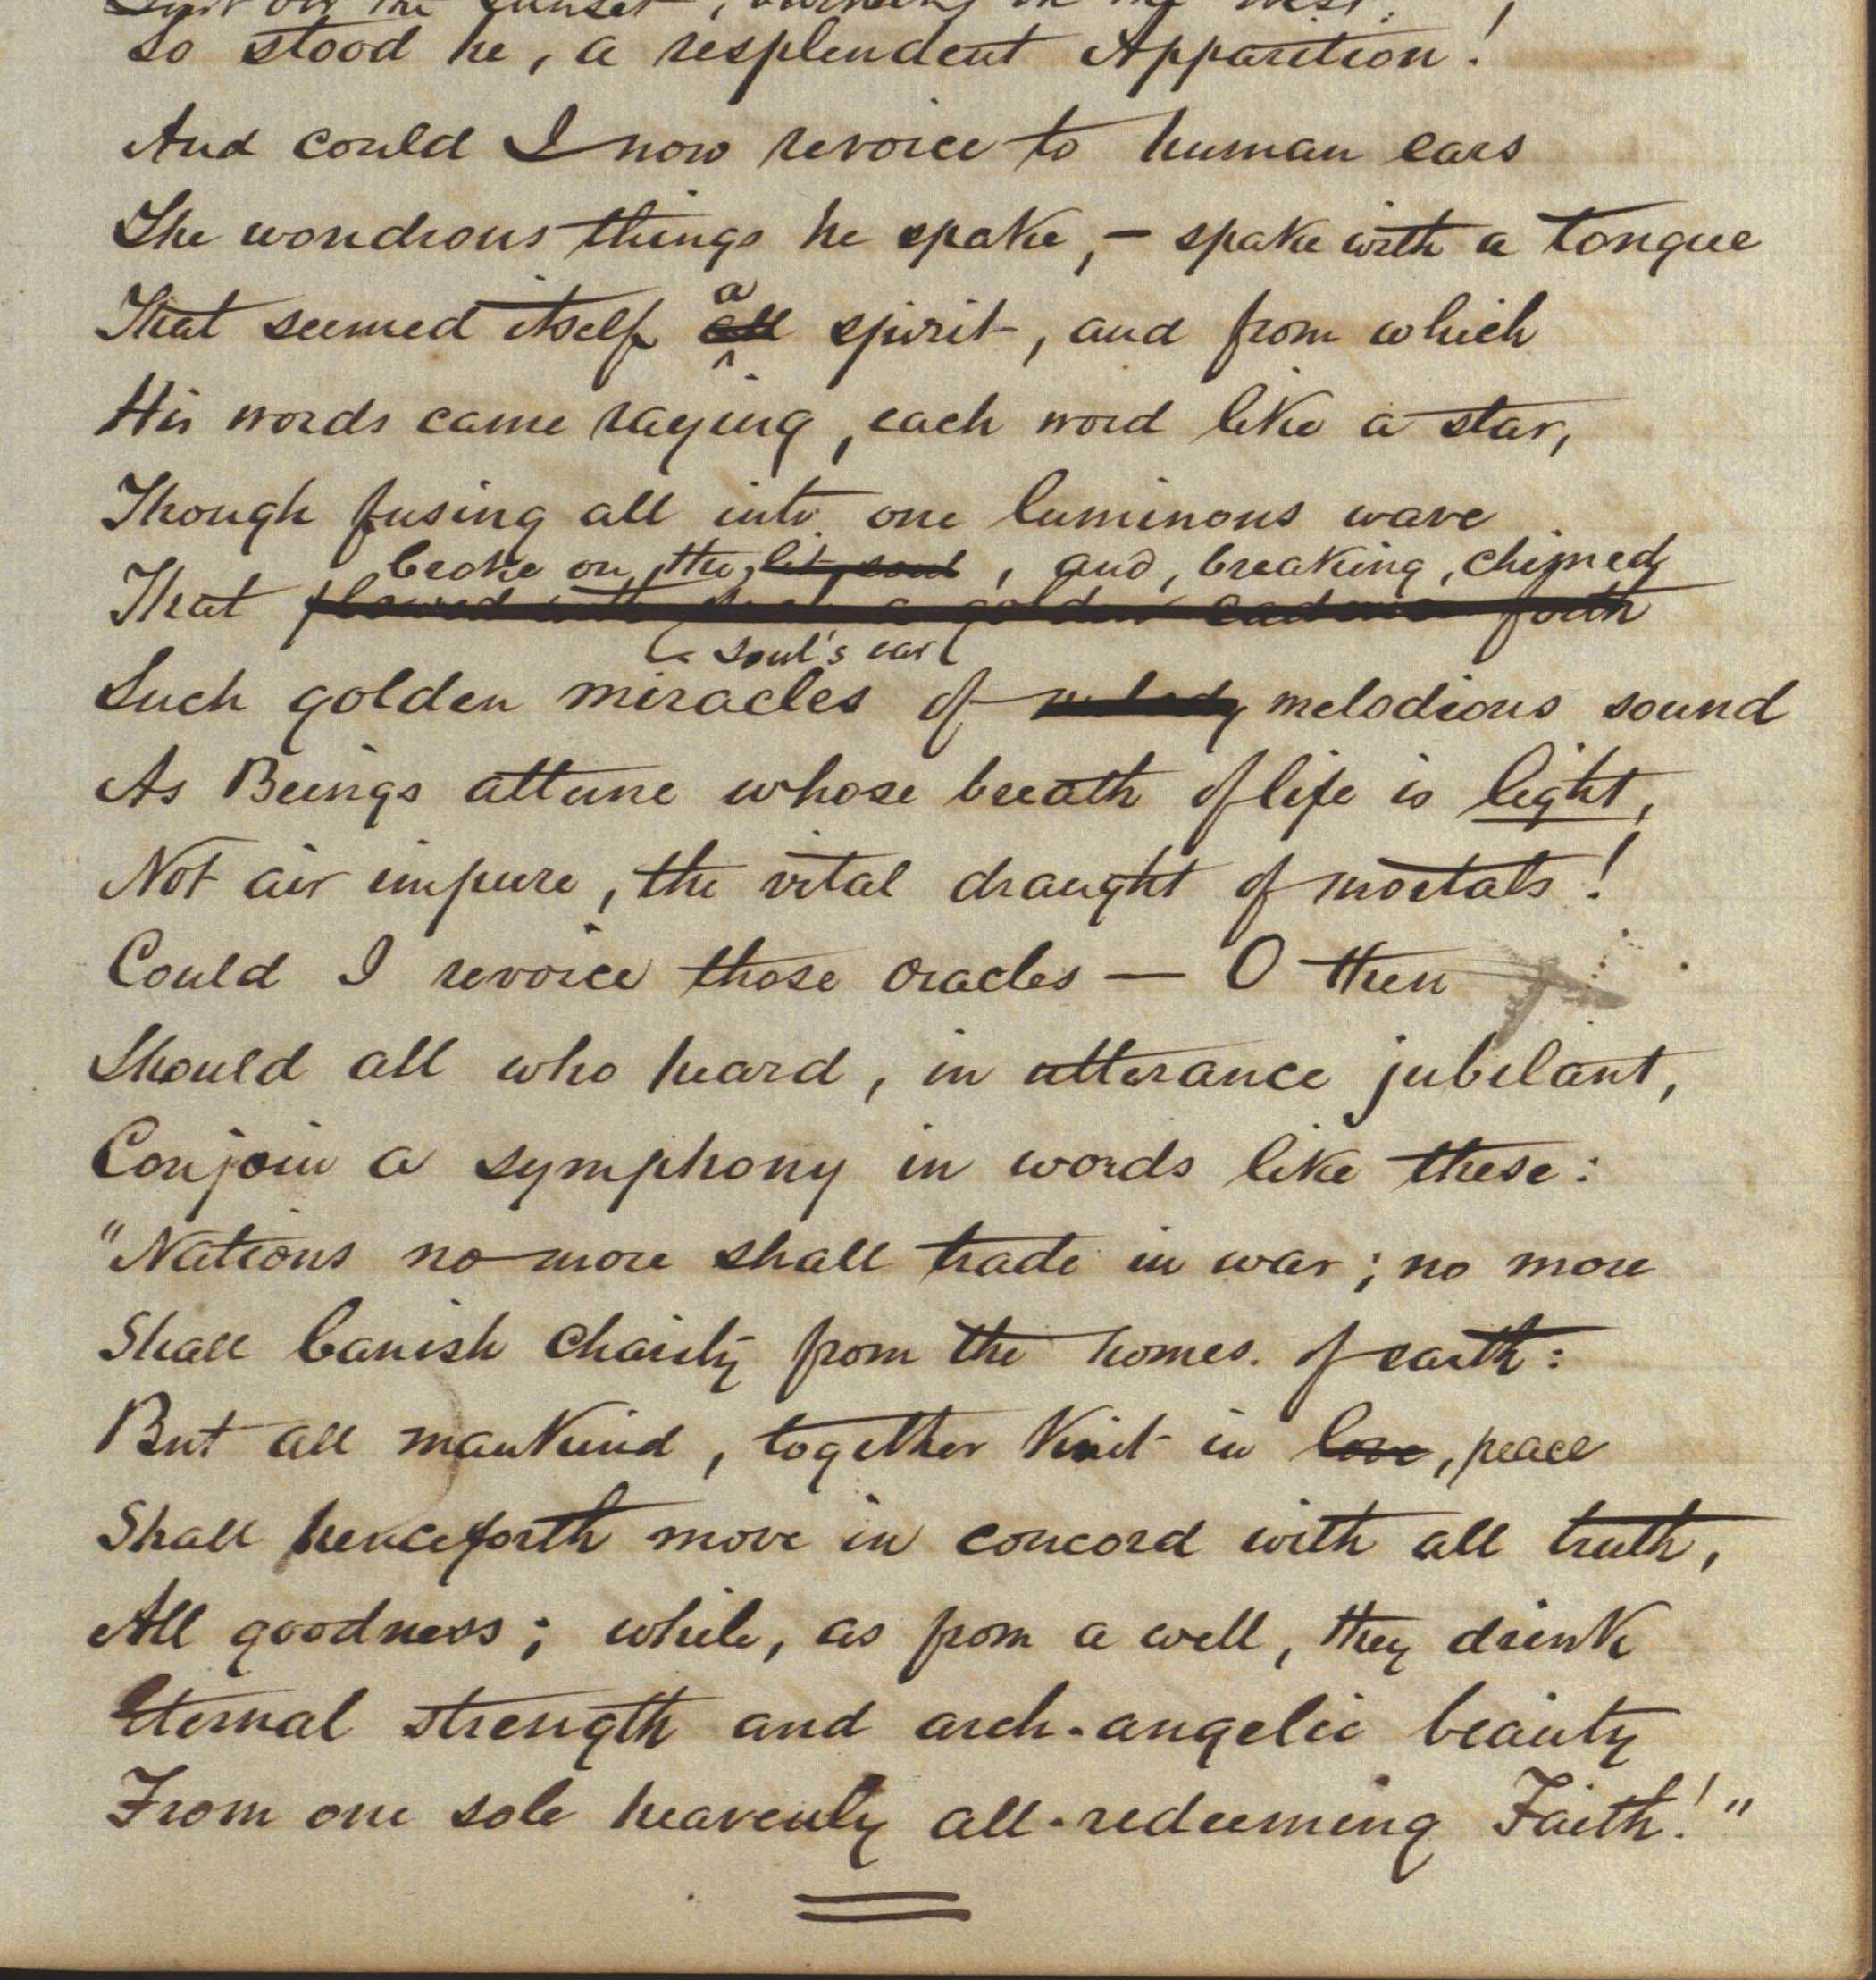 So stood he, a resplendent Apparition!
And could I now revoice to human ears
The wondrous things he spake, – spake with a tongue
a
That seemed itself all spirit, and from which
His words came raying, each word like a star,
Though fusing all into one luminous wave
broke on the lit soul, and, breaking, chimed
That flowed with such a golden cadence forth
soul's ear
Such golden miracles of melody melodious sound
As Beings attune whose breath of life is light,
Not air impure, the vital draught of mortals!
Could I revoice those oracles — O then
Should all who heard, in utterance jubilant,
Conjoin a symphony in words like these:
"Nations no more shall trade in war; no more
Shall banish Charity from the homes of earth:
But all mankind, together knit in love, peace
Shall henceforth move in concord with all truth,
All goodness; while, as from a well, they drink
Eternal strength and arch-angelic beauty
From one sole heavenly all-redeeming Faith!"